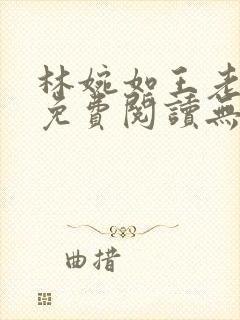 林婉如王老
免費閱讀無
曲措